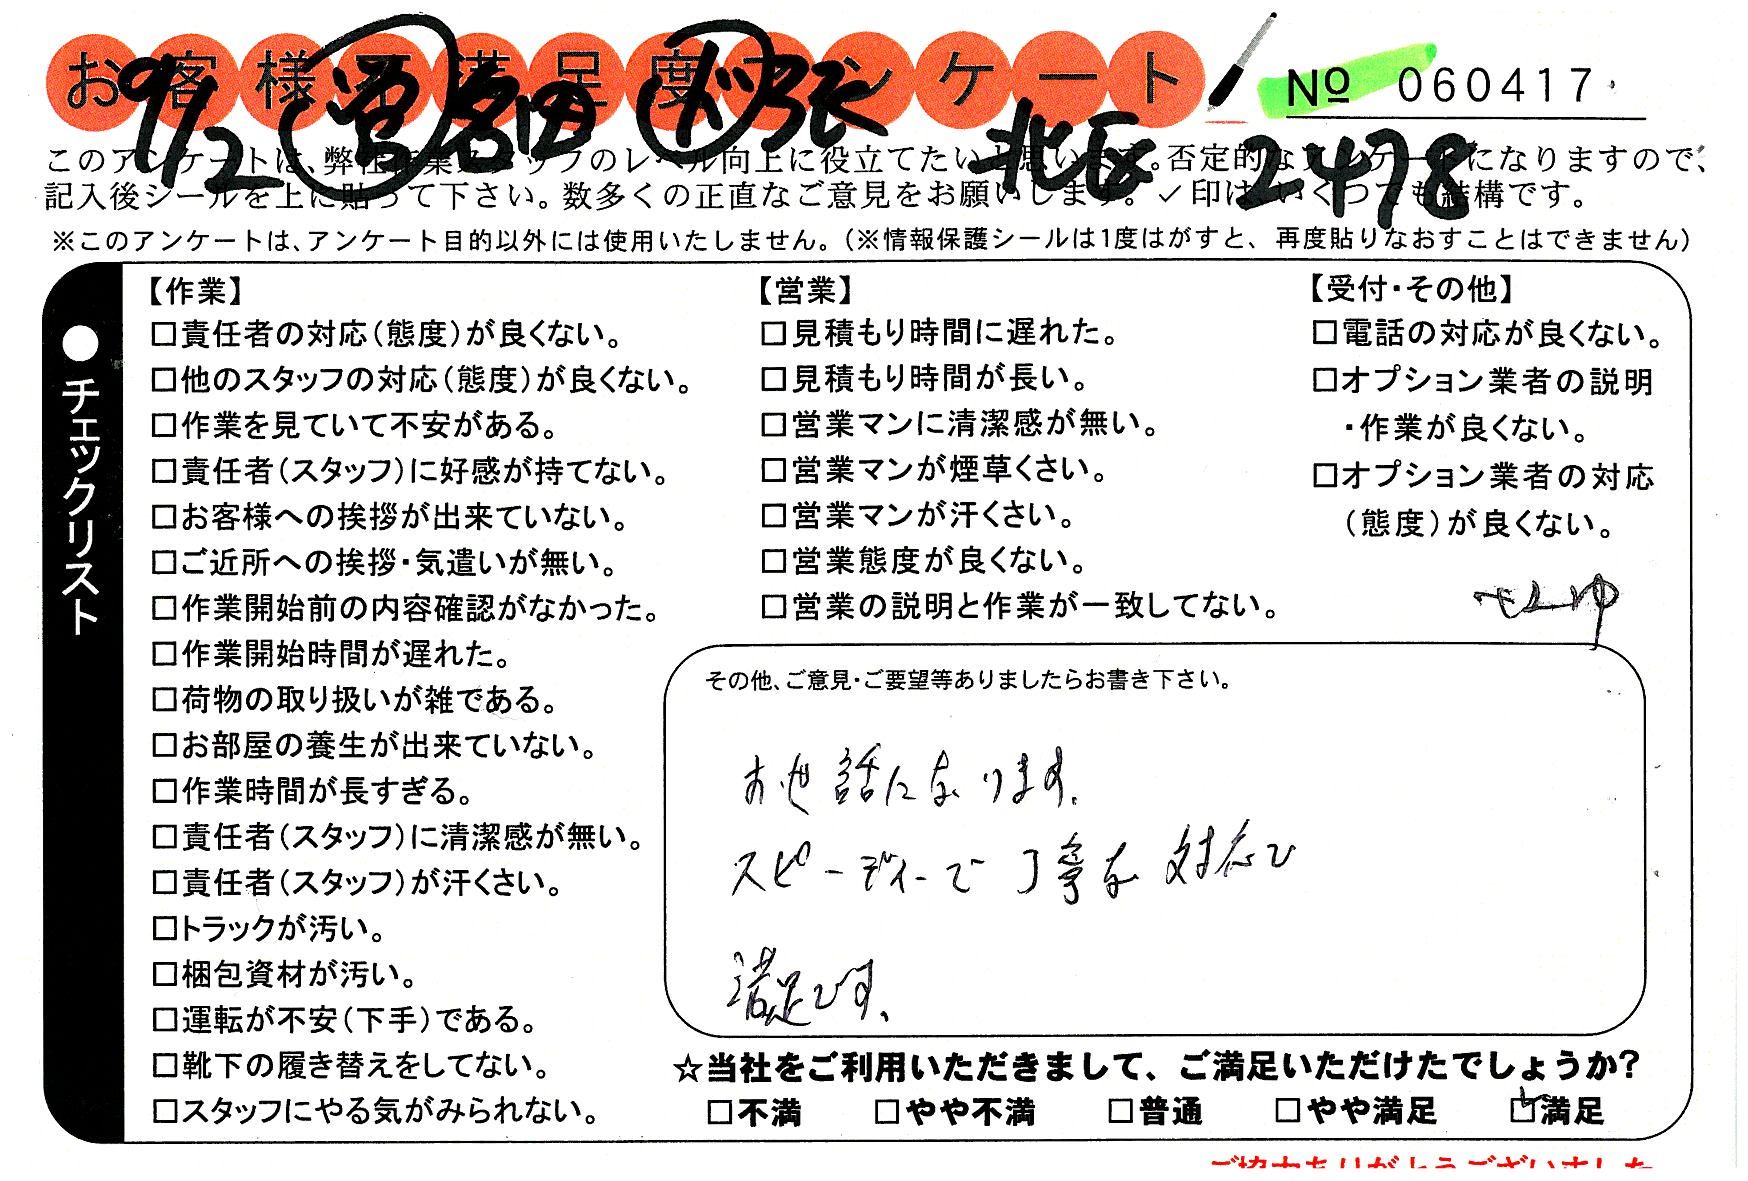 お客様不満足度アンケート
№ 060417
9/2 営 倉田 ド 北区 2478
このアンケートは、弊社作業スタッフのレベル向上に役立てたいと思います。否定的なアンケートになりますので、
記入後シールを上に貼って下さい。数多くの正直なご意見をお願いします。✓印はいくつでも結構です。
※このアンケートは、アンケート目的以外には使用いたしません。（※情報保護シールは1度はがすと、再度貼りなおすことはできません）
●チェックリスト
【作業】
□責任者の対応（態度）が良くない。
□他のスタッフの対応（態度）が良くない。
□作業を見ていて不安がある。
□責任者（スタッフ）に好感が持てない。
□お客様への挨拶が出来ていない。
□ご近所への挨拶・気遣いが無い。
□作業開始前の内容確認がなかった。
□作業開始時間が遅れた。
□荷物の取り扱いが雑である。
□お部屋の養生が出来ていない。
□作業時間が長すぎる。
□責任者（スタッフ）に清潔感が無い。
□責任者（スタッフ）が汗くさい。
□トラックが汚い。
□梱包資材が汚い。
□運転が不安（下手）である。
□靴下の履き替えをしてない。
□スタッフにやる気がみられない。
【営業】
□見積もり時間に遅れた。
□見積もり時間が長い。
□営業マンに清潔感が無い。
□営業マンが煙草くさい。
□営業マンが汗くさい。
□営業態度が良くない。
□営業の説明と作業が一致してない。
【受付・その他】
□電話の対応が良くない。
□オプション業者の説明
・作業が良くない。
□オプション業者の対応
（態度）が良くない。
その他、ご意見・ご要望等ありましたらお書き下さい。
お世話になります。
スピーディーで丁寧な対応で
満足です。
☆当社をご利用いただきまして、ご満足いただけたでしょうか?
□不満 □やや不満 □普通 □やや満足 ☑満足
ご協力ありがとうございました